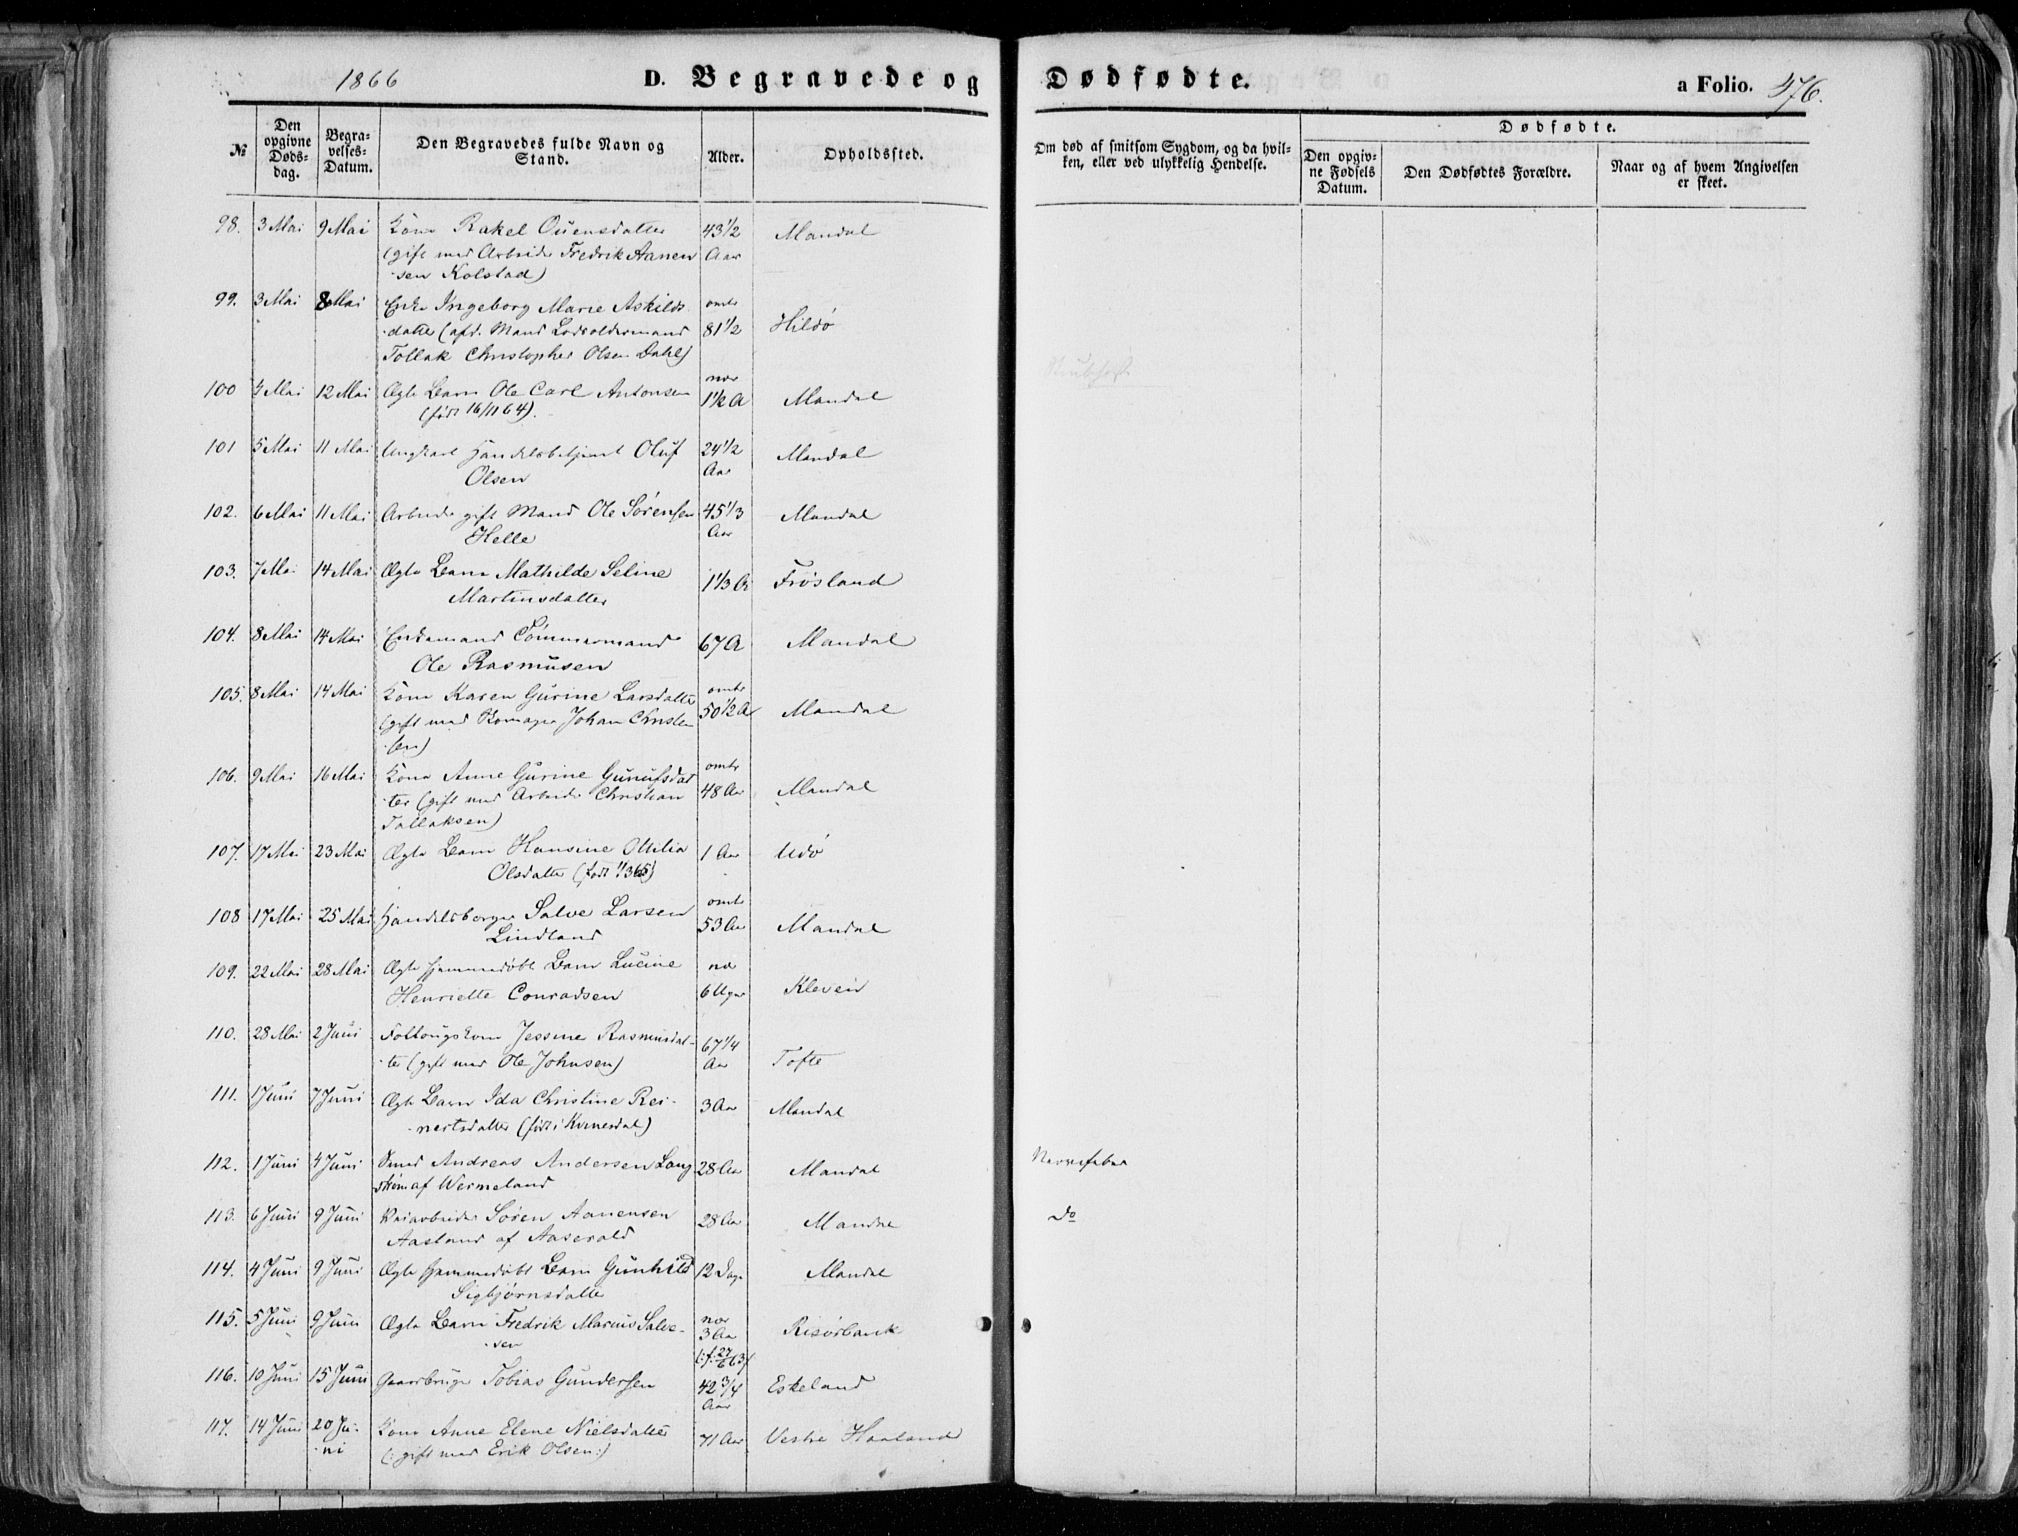 1866 D. Begravede og Dødfødte. a Folio. 476.
№ Den opgivne Døds-dag. Begra-velses-Datum. Den Begravedes fulde Navn og Stand. Alder. Opholdssted. Om død af smitsom Sygdom, og da hvil-ken, eller ved ulykkelig Hendelse. Dødfødte. Den opgiv-ne Fødsels Datum. Den Dødfødtes Forældre. Naar og af hvem Angivelsen er skeet.
98. 3 Mai 9 Mai Kone Rakel Ouensdatter 43 1/2 Mandal
(gift med Arbeider Fredrik Aanen Aar
sen Kolstad)
99. 3 Mai 8 Mai Enke Ingeborg Marie Askilds- omtr
datter (afd. Mand Lodsoldermand 81 1/2 Hildø
Tollak Christopher Olsen Dahl)
100 4 Mai 12 Mai Ægte Barn Ole Carl Antonsen nær 1 1/2 A Mandal
(født 16/11 64).
101 5 Mai 11 Mai Ungkarl Handelsbetjent Oluf 24 1/2 Mandal
Olsen Aar
102. 6 Mai 11 Mai Arbeider gift Mand Ole Sørensen 45 1/3 Mandal
Helle Aar
103. 7 Mai 14 Mai Ægte Barn Mathilde Seline 1 1/3 A Frøsland
Martinsdatter
104. 8 Mai 14 Mai Enkemand Tømmermand 67 A Mandal
Ole Rasmusen
105. 8 Mai 14 Mai Kone Karen Gurine Larsdatter omtr
(gift med Skomager Johan Christen 50 1/2 A Mandal
sen)
106. 9 Mai 16 Mai Kone Anne Gurine Gunufsdat omtr
ter (gift med Arbeider Christian 48 Aar Mandal
Tallaksen)
107. 17 Mai 23 Mai Ægte Barn Hansine Ottilia 1 Aar Udø
Olsdatter (født 1/3 65)
108 17 Mai 25 Mai Handelsborger Salve Larsen omtr
Lindland 53 Aar Mandal
109. 22 Mai 28 Mai Ægte hjemmedøbt Barn Lucine nær
Henriette Conradsen 6 Uger Kleven
110. 28 Mai 2 Juni Føllougskone Jessine Rasmusdat- 67 1/4
ter (gift med Ole Johnsen) Aar Tofte
111. 1 Juni 7 Juni Ægte Barn Ida Christine Rei- 3 Aar Mandal
nertsdatter (født i Kvinesdal)
112. 1 Juni 4 Juni Smed Andreas Andersen Lang 28 Aar Mandal Nervefeber
strøm af Wermeland
113. 6 Juni 9 Juni Veiarbeider Søren Aanensen 28 Aar Mandal Do
Aasland af Aaserald
114. 4 Juni 9 Juni Ægte hjemmedøbt Barn Gunhild 12 Dage Mandal
Sigbjørnsdatter
115. 5 Juni 9 Juni Ægte Barn Fredrik Marius Salve- nær 3 Aar Risørbank
sen (: f. 27/6 63)
116. 10 Juni 15 Juni Gaardbruger Tobias Gundersen 42 3/4 Eskeland
Aar
117. 14 Juni 20 Ju- Kone Anne Elene Nielsdatter 71 Aar Vestre Haaland
ni (: gift med Erik Olsen :)